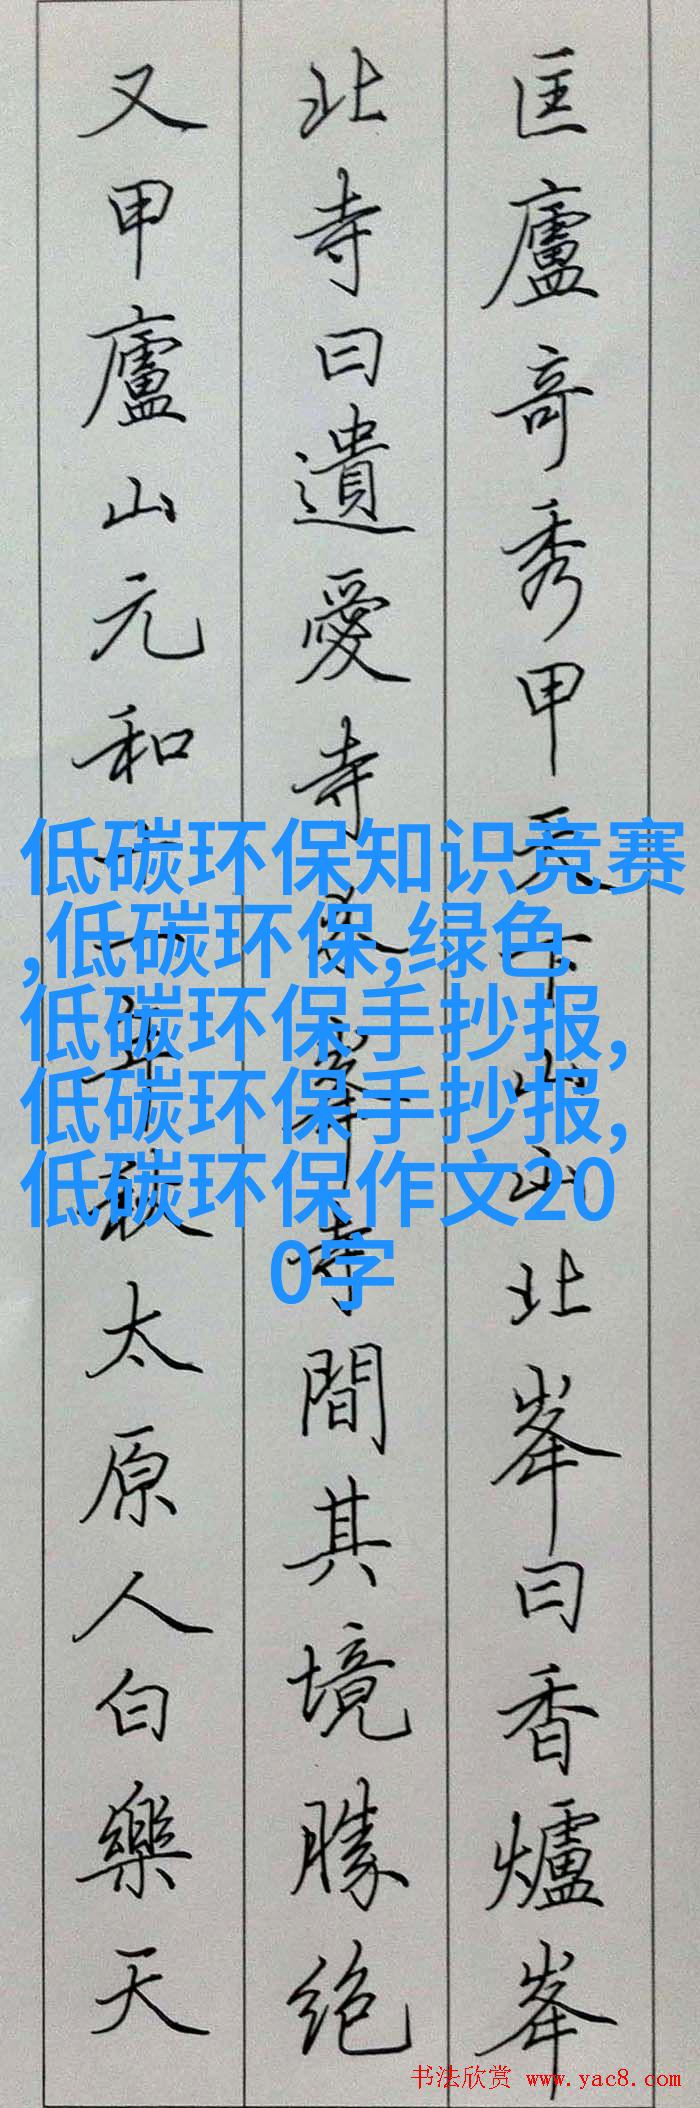 匡廬奇秀甲天下山山北峯曰香爐峯
北寺曰遺愛寺介峯寺間其境勝絶
又甲廬山元和十一年秋太原人白樂天
低碳环保知识竞赛
,低碳环保,绿色
低碳环保手抄报,
低碳环保手抄报,
低碳环保作文20
0字
书法欣赏 www.yac8.com